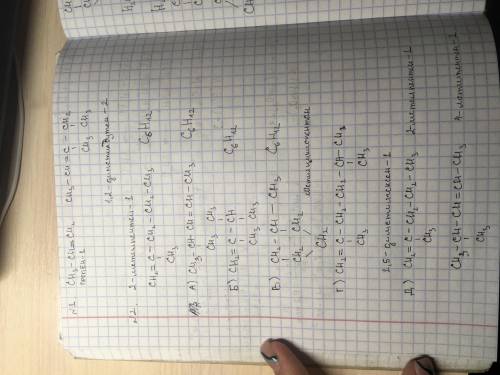 №1 CH₃–CH=CH₂ CH₃–CH=C–CH₂
пропен-1 CH₃ CH₃
1,2-диметилбутен-2
№2. 2-метилпентен-1
CH₂=C–CH₂–CH₂–CH₃ C₆H₁₂
CH₃
А) CH₃–CH CH=CH–CH₃ C₆H₁₂
CH₃ CH₃
Б) CH₂=C–CH C₆H₁₂
CH₃ CH₃
В) CH₂–CH–CH₃ C₆H₁₂
CH₂ CH₂
CH₂
Г) CH₂=C–CH₂–CH₂–CH–CH₃
CH₃ CH₃
2,5-диметилгексен-1
Д) CH₂=C–CH₂–CH₂–CH₃ 2-метилпентен-1
CH₃
CH₃–CH–CH=CH–CH₃
CH₃